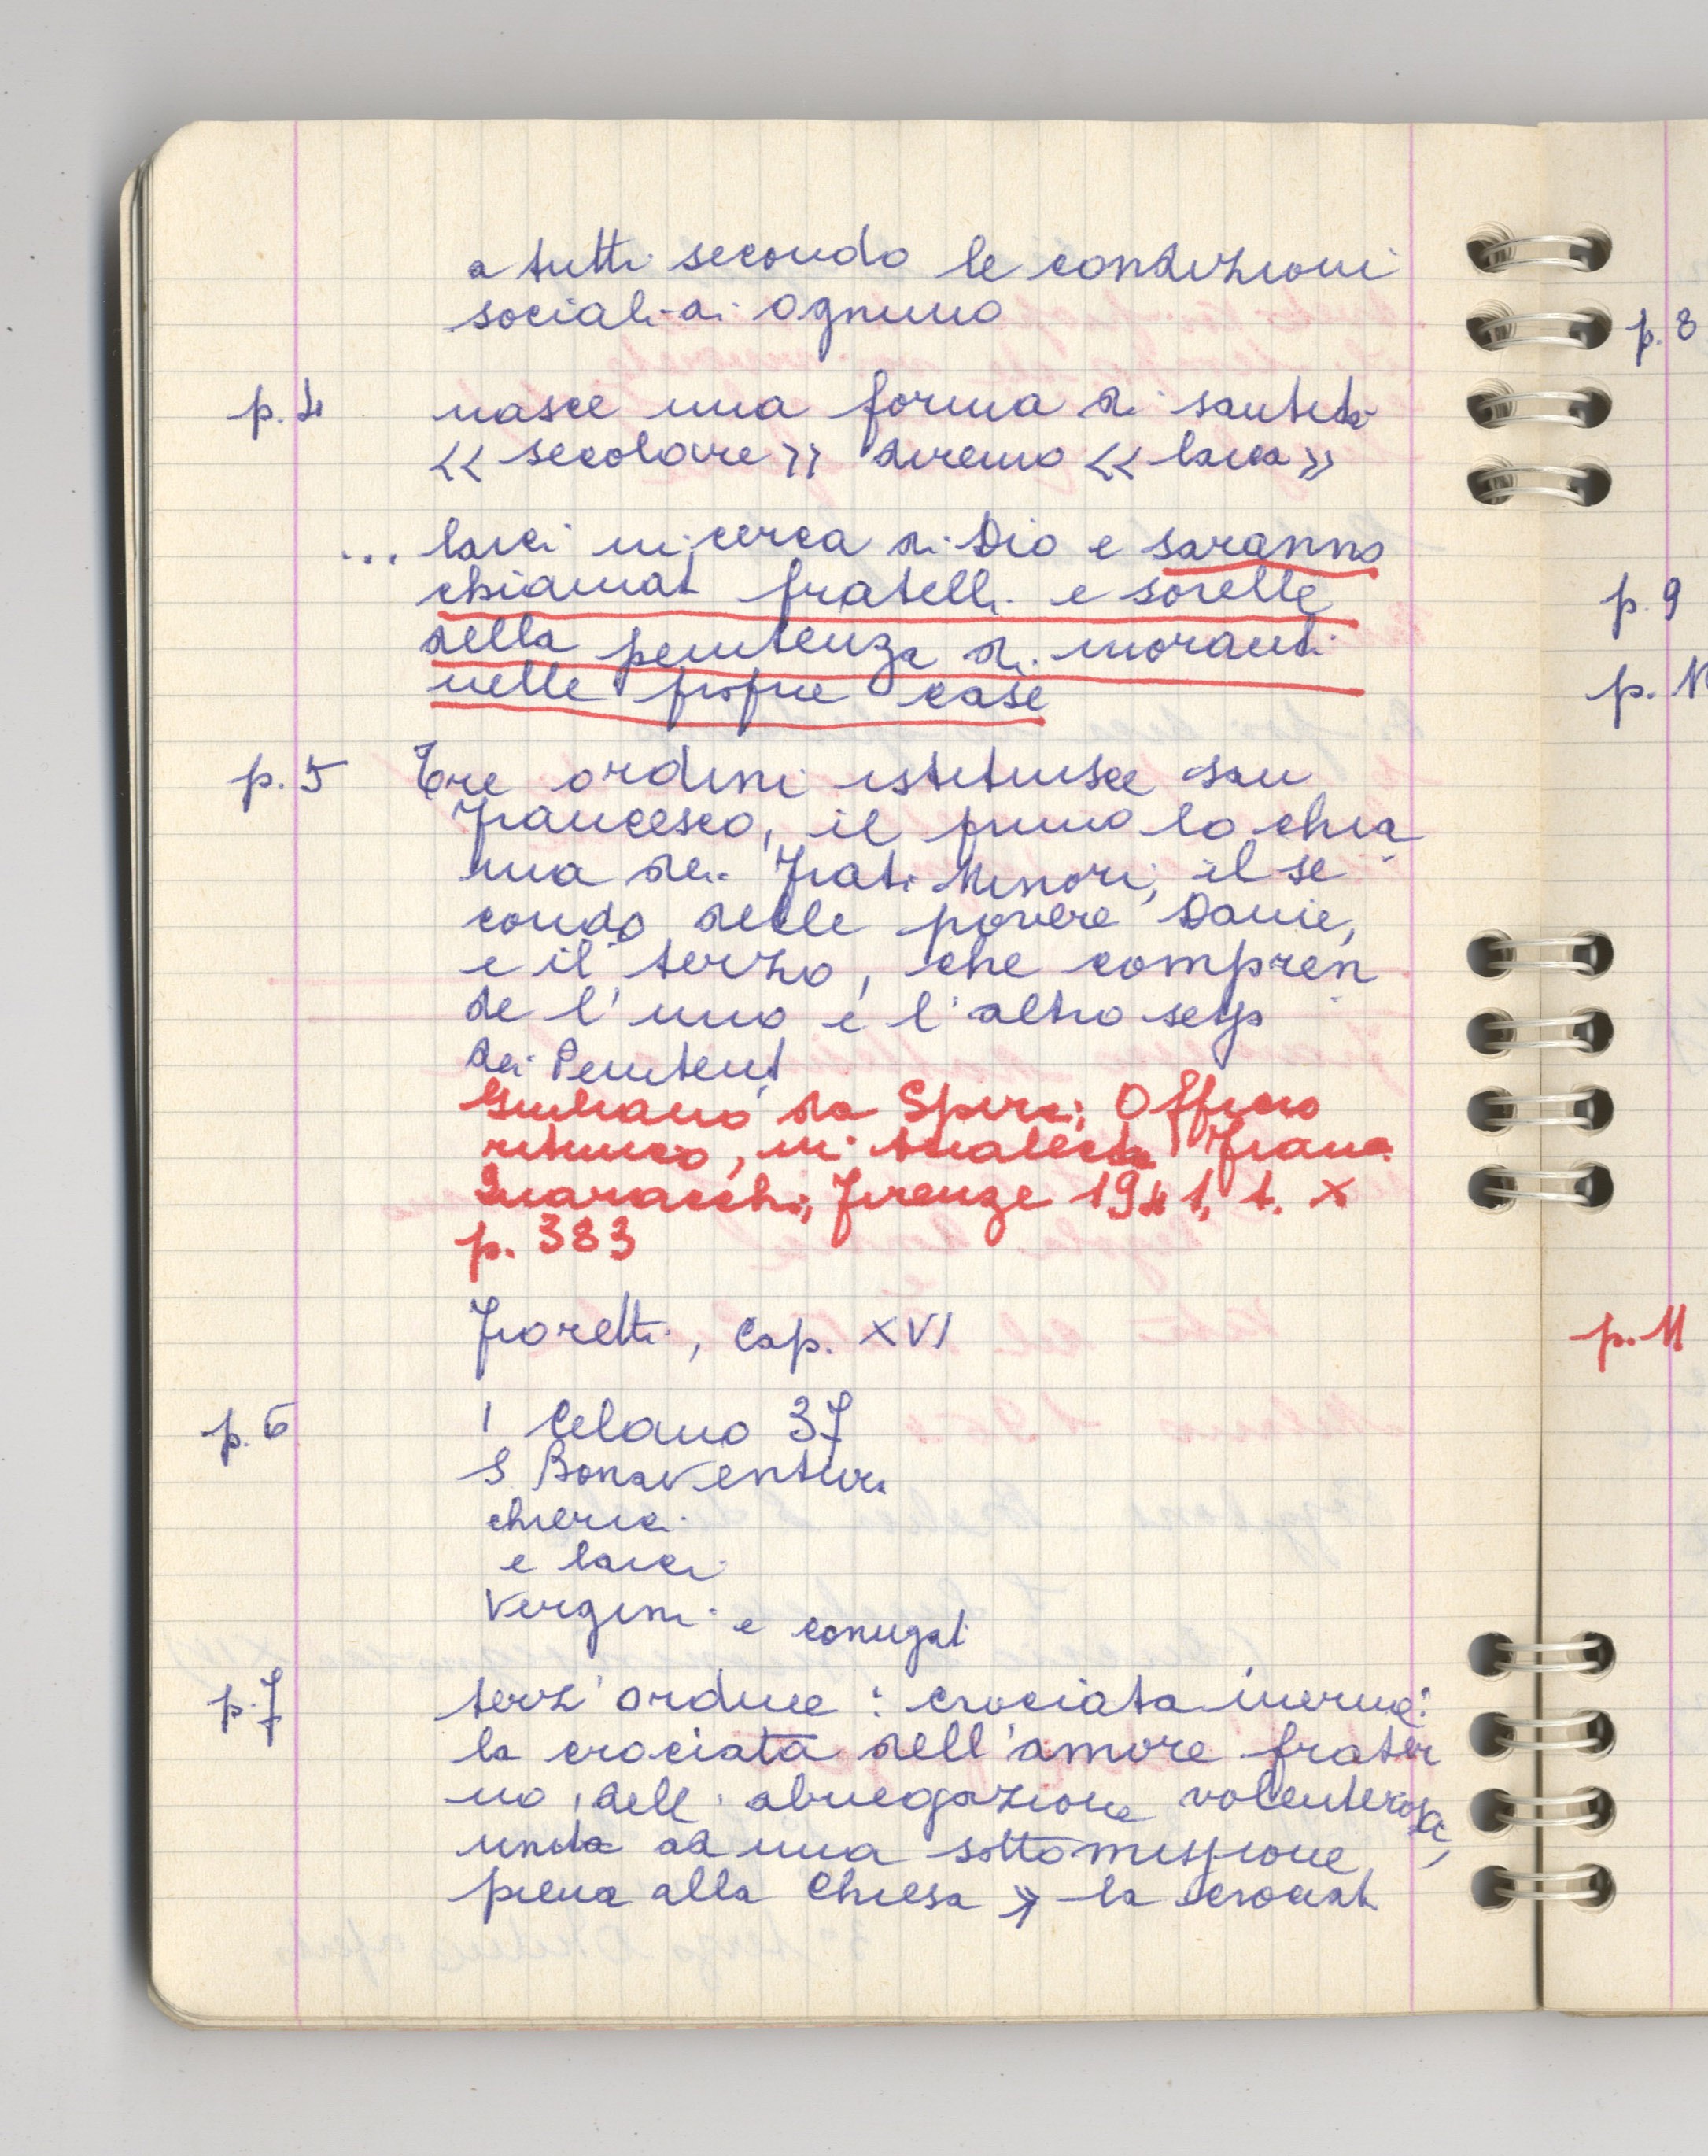 a tutti secondo le condizioni
sociali di ognuno
p. 4 nasce una forma di santità
<< secolare >> diremo << laica >>
... laici in cerca di Dio e saranno
chiamati fratelli e sorelle
della penitenza di moranti
nelle proprie case
p. 5 Tre ordini istituisce san
Francesco, il primo lo chia
ma dei Frati Minori, il se
condo delle povere Dame,
e il terzo, che compren
de l'uno e l'altro sesso
dei Penitenti
Giuliano da Spira; Officio
ritmico, in Analecta Franc
Quaracchi, Firenze 1941, t. X
p. 383
Fioretti, cap. XVI
p. 6 1 Celano 37
S Bonaventura
chierici
e laici
Vergini e coniugati
p. 7 terz'ordine : crociata inerme:
la crociata dell'amore frater
no, dell'abnegazione volenterosa,
unita ad una sottomissione
piena alla Chiesa » la crociat
p. 8
p. 9
p. 11